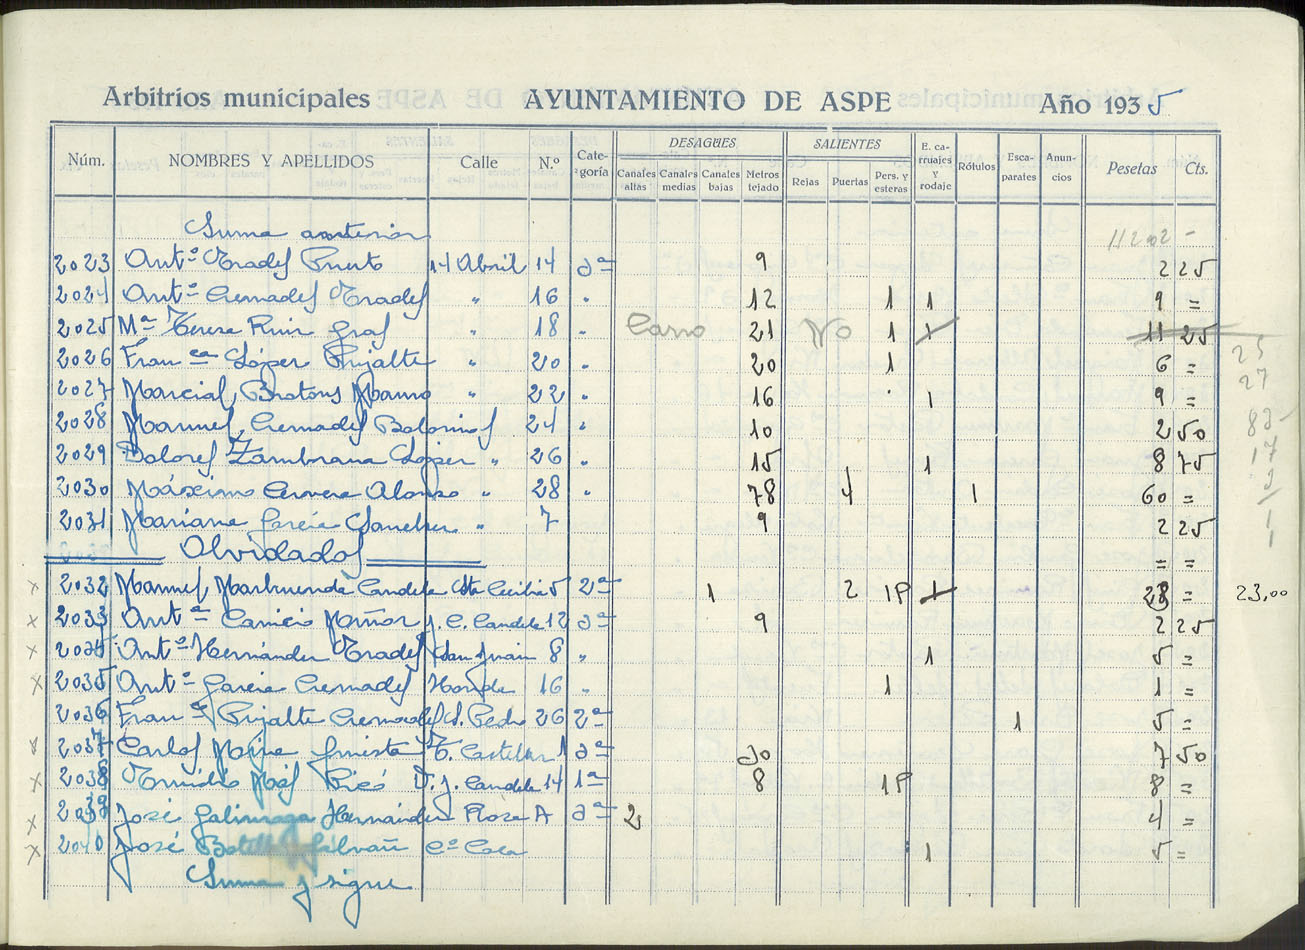 Arbitrios municipales AYUNTAMIENTO DE ASPE Año 1935
Núm. NOMBRES Y APELLIDOS Calle N.º Cate-goría DESAGÜES Canales altas Canales medias Canales bajas Metros tejado SALIENTES Rejas Puertas Pers. y esteras E. ca-rruajes y rodaje Rótulos Esca-parates Anun-cios Pesetas Cts.
Suma anterior
2023 Antº Pradef Puerto 14 Abril 14 3ª 9 2 25
2024 Antº Cremadef Pradef " 16 " 12 1 1 9 =
2025 Mª Teresa Ruiz " 18 " Carro 21 No 1 1 11 25
2026 Franca López Pujalte " 20 " 20 1 6 = 25
2027 Marcial Brotons " 22 " 16 1 9 = 27
2028 Manuel Cremadef 24 " 10 2 50
2029 Dolores Zambrana López " 26 " 15 1 8 75 17
2030 Máximo Cervera Alonso " 28 " 78 4 1 60 =
2031 Mariana García Sanchez " 7 9 2 25 1
Olvidados = = 1
x 2032 Manuel Candela Sta Cecilia 5 2ª 1 2 1P 1 28 = 23,00
x 2033 Antª J. C. Candela 12 3ª 9 2 25
x 2034 Antº Hernández Pradef San Juan 8 " 1 5 =
x 2035 Antª García Cremadef 16 " 1 1 =
2036 Franª Pujalte Cremadef S. Pedro 26 2ª 1 5 =
2037 Carlos E. Castelar 1 3ª 30 7 50
x 2038 Más Picó V. J. Candela 14 1ª 8 1P 8 =
x 2039 José Galinsaga Hernández Rosa A 3ª 2 4 =
x 2040 José Galvañ Cº Coca 1 5 =
Suma y sigue